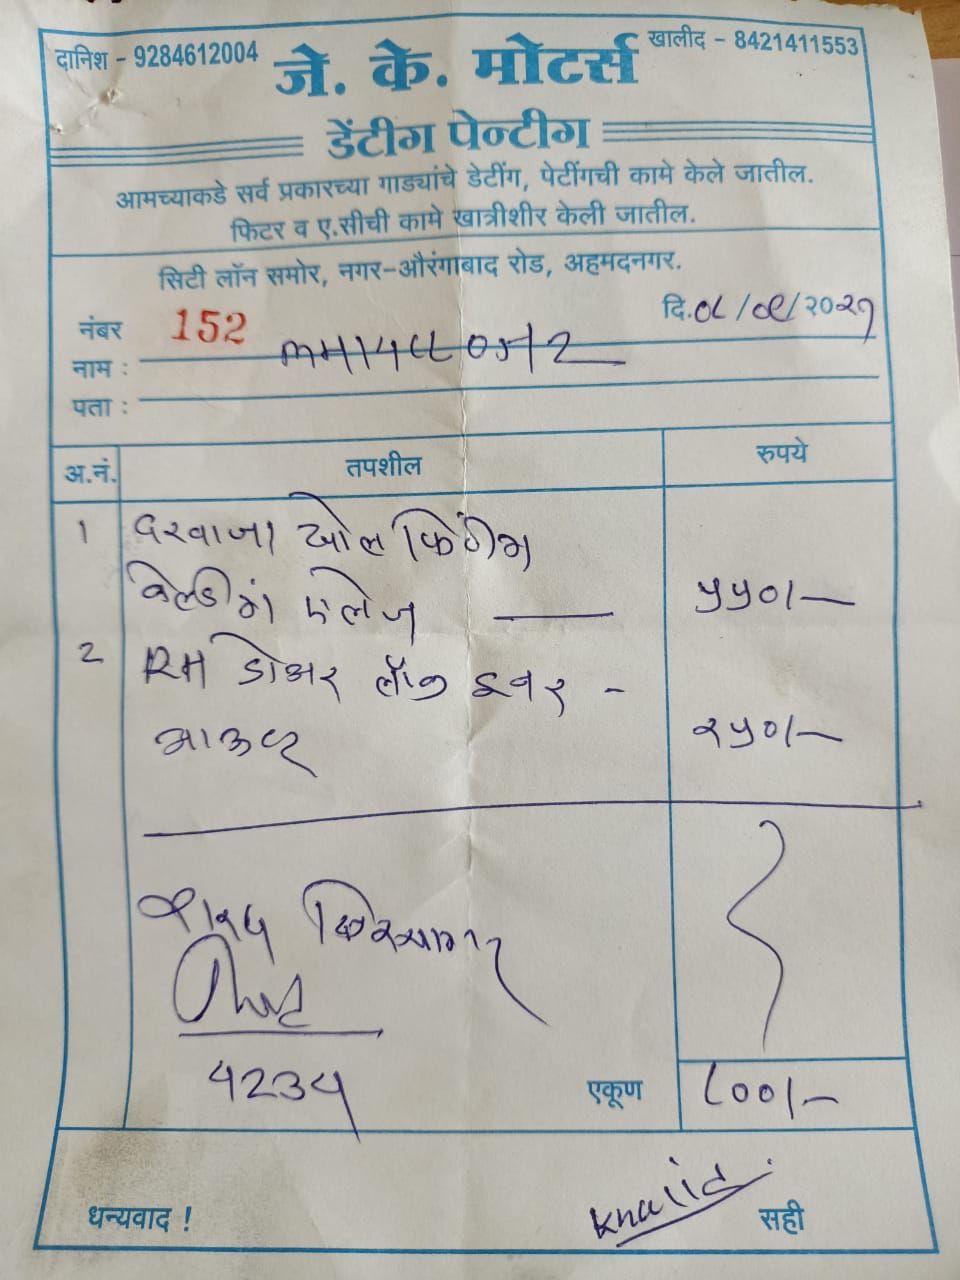 दानिश - 9284612004
खालीद - 8421411553
जे. के. मोटर्स
डेंटीग पेन्टीग
आमच्याकडे सर्व प्रकारच्या गाड्यांचे डेटींग, पेटींगची कामे केले जातील.
फिटर व ए.सीची कामे खात्रीशीर केली जातील.
सिटी लॉन समोर, नगर-औरंगाबाद रोड, अहमदनगर.
नंबर 152
दि.०८/०९/२०२१
नाम :
पता :
अ.नं. तपशील रुपये
1 दरवाजा खोल फिटींग
वेल्डींग ५५०/-
2 RH डोअर लॉक इनर -
आऊटर २५०/-
शरद क्षिरसागर
एकूण ८००/-
धन्यवाद !
Khalid
सही